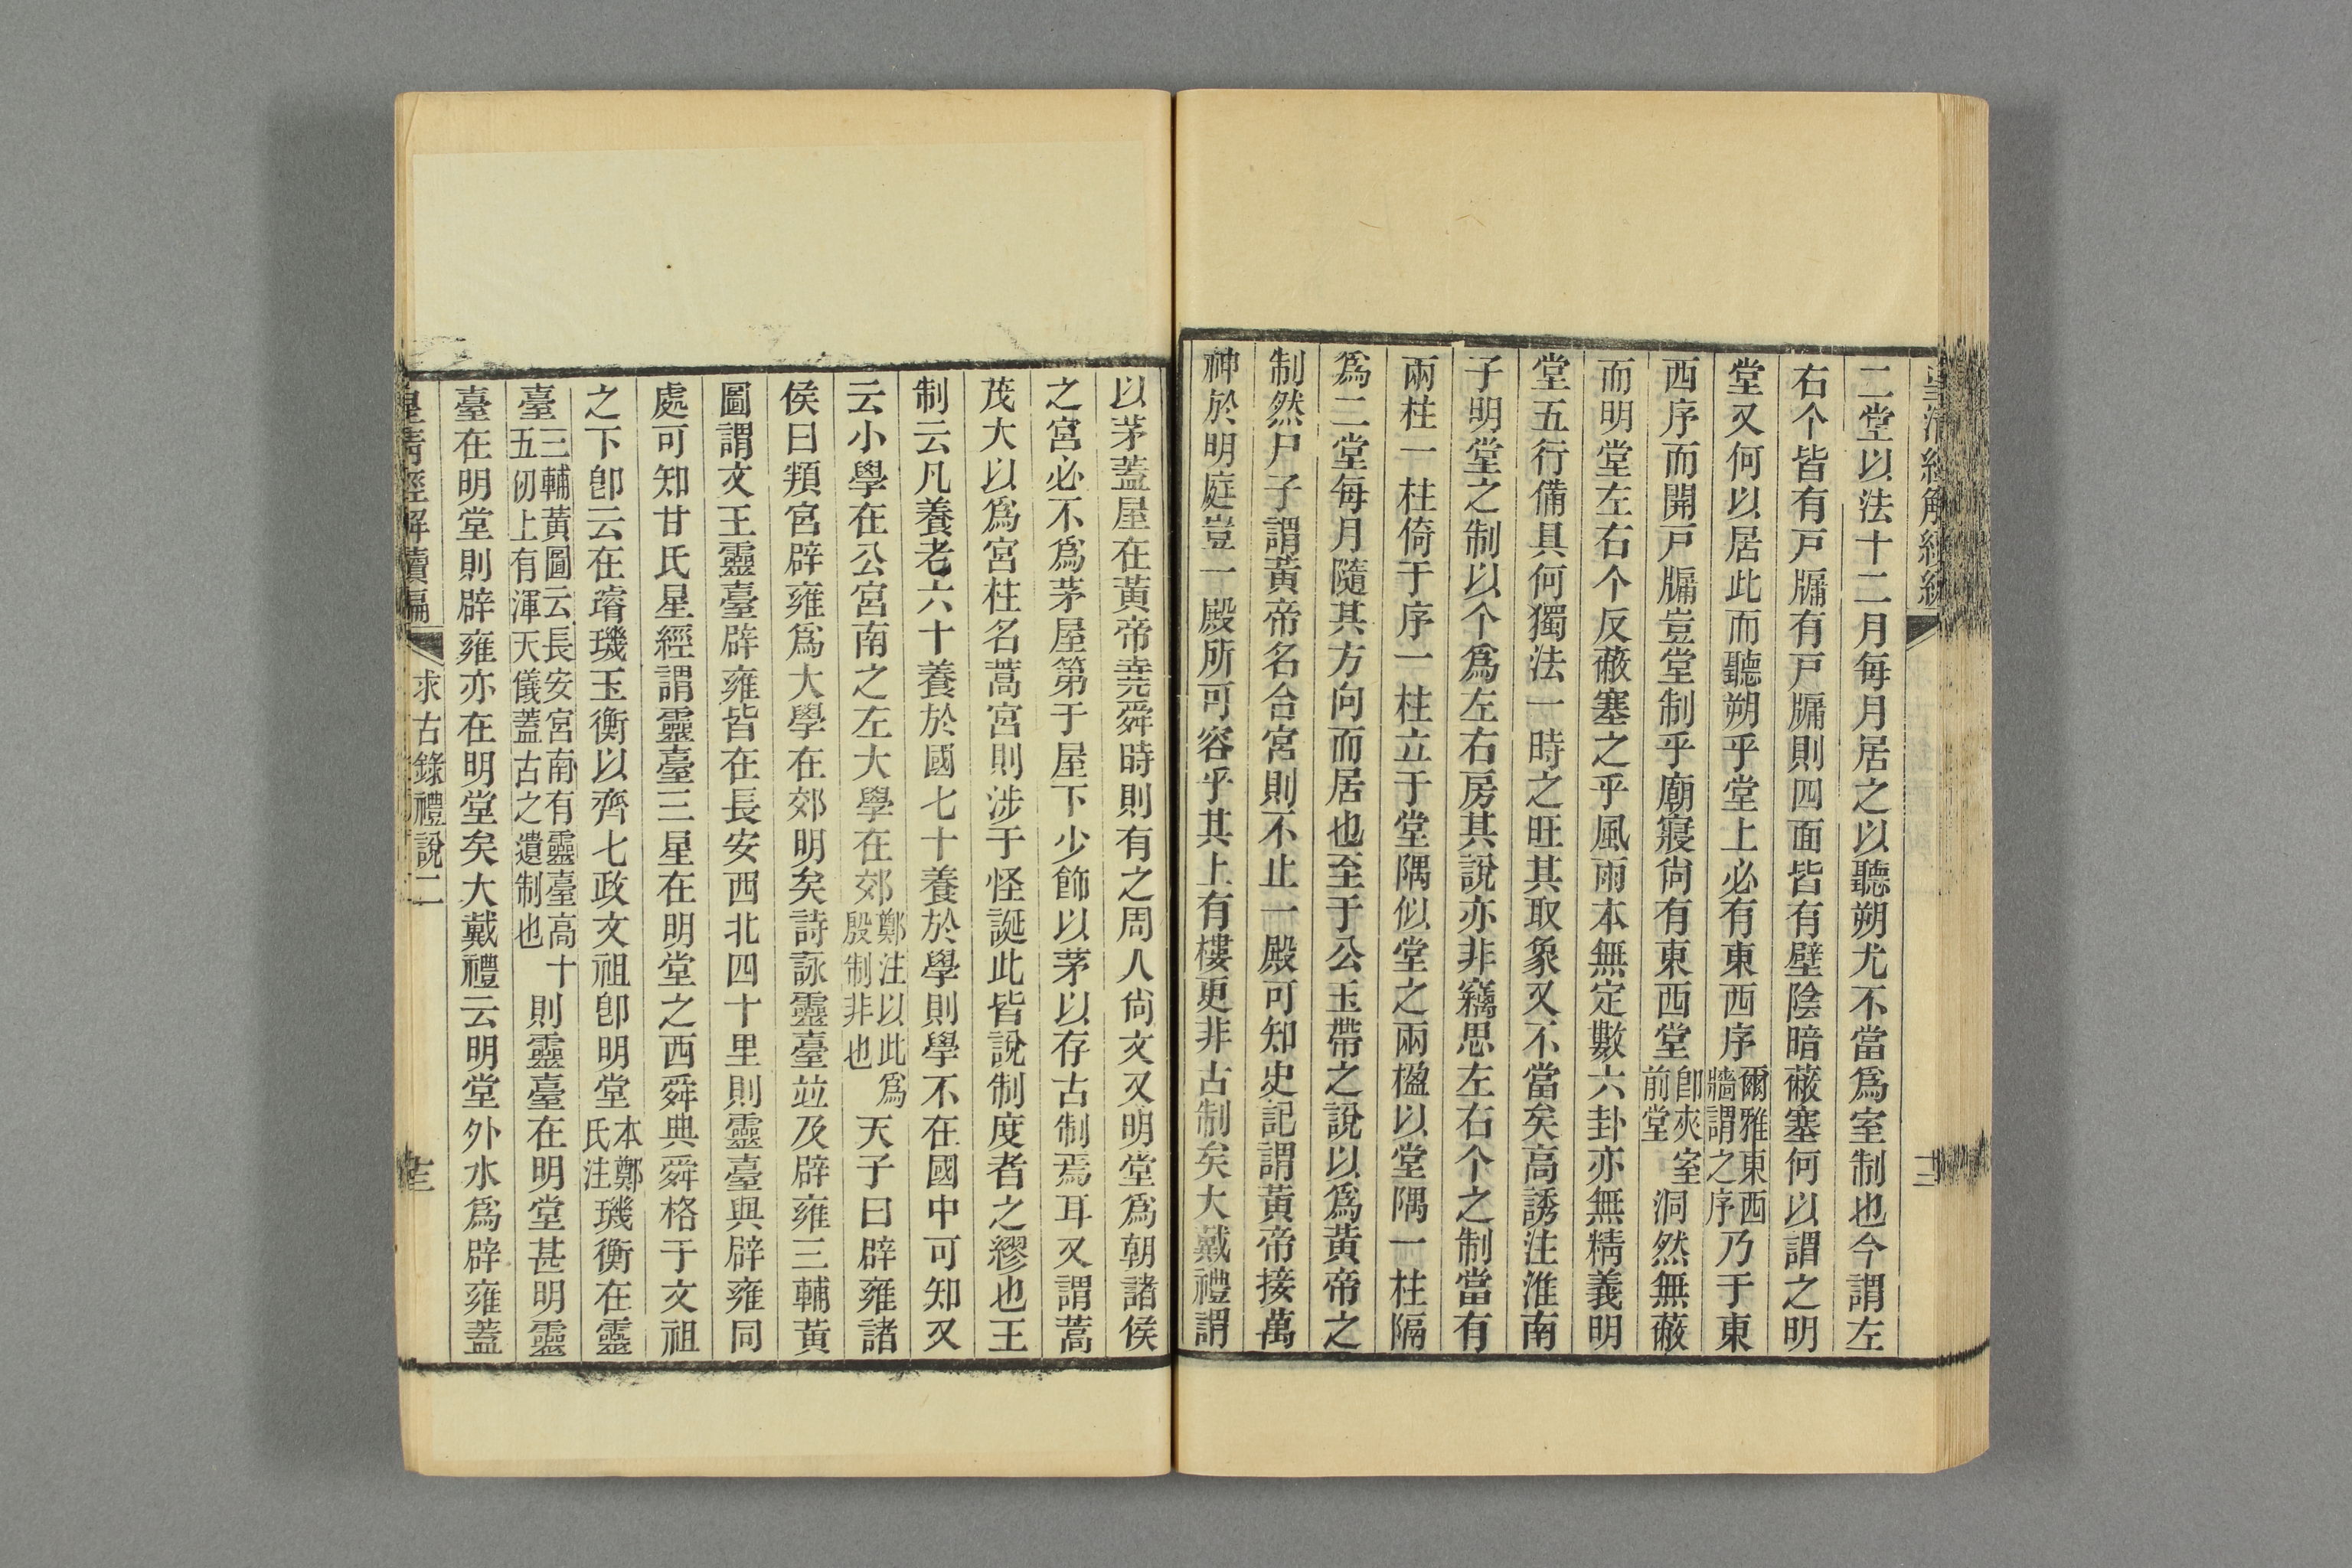 二堂以法十二月每月居之以聽朔尤不當爲室制也今謂左
右个皆有戸牖有戸牖則四面皆有壁陰暗蔽塞何以謂之明
堂又何以居此而聽朔乎堂上必有東西序爾雅東西牆謂之序乃于東
西序而開戸牖豈堂制乎廟寢尙有東西堂卽夾室前堂洞然無蔽
而明堂左右个反蔽塞之乎風雨本無定數六卦亦無精義明
堂五行備具何獨法一時之旺其取象又不當矣高誘注淮南
子明堂之制以个爲左右房其說亦非竊思左右个之制當有
兩柱一柱倚于序一柱立于堂隅似堂之兩楹以堂隅一柱隔
爲二堂每月隨其方向而居也至于公玉帶之說以爲黃帝之
制然尸子謂黃帝名合宮則不止一殿可知史記謂黃帝接萬
神於明庭豈一殿所可容乎其上有樓更非古制矣大戴禮謂
以茅蓋屋在黃帝堯舜時則有之周人尙文又明堂爲朝諸侯
之宮必不爲茅屋第于屋下少飾以茅以存古制焉耳又謂蒿
茂大以爲宮柱名蒿宮則涉于怪誕此皆說制度者之繆也王
制云凡養老六十養於國七十養於學則學不在國中可知又
云小學在公宮南之左大學在郊鄭注以此爲殷制非也天子曰辟雍諸
侯曰頖宮辟雍爲大學在郊明矣詩詠靈臺竝及辟雍三輔黃
圖謂文王靈臺辟雍皆在長安西北四十里則靈臺與辟雍同
處可知甘氏星經謂靈臺三星在明堂之西舜典舜格于文祖
之下卽云在璿璣玉衡以齊七政文祖卽明堂本鄭氏注璣衡在靈
臺三輔黃圖云長安宮南有靈臺高十五仞上有渾天儀蓋古之遺制也則靈臺在明堂甚明靈
臺在明堂則辟雍亦在明堂矣大戴禮云明堂外水爲辟雍蓋
皇淸經解續編 求古錄禮說二 十三